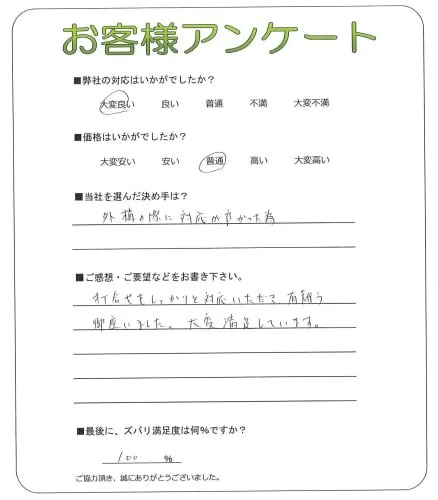 お客様アンケート
■弊社の対応はいかがでしたか？
大変良い 良い 普通 不満 大変不満
■価格はいかがでしたか？
大変安い 安い 普通 高い 大変高い
■当社を選んだ決め手は？
外構の際に対応が良かった為
■ご感想・ご要望などをお書き下さい。
打合せもしっかりと対応いただき、有難う
御座いました。大変満足しています。
■最後に、ズバリ満足度は何％ですか？
100 ％
ご協力頂き、誠にありがとうございました。